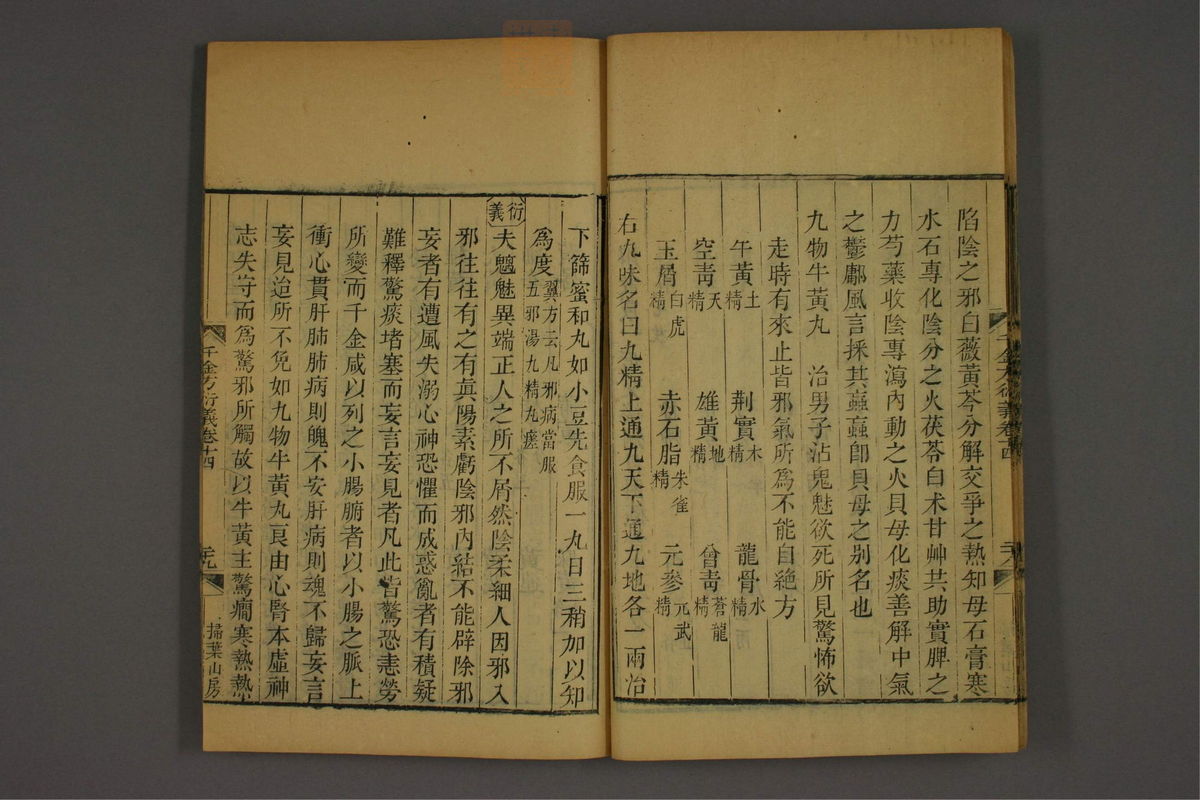 陷陰之邪白薇黃芩分解交爭之熱知母石膏寒
水石專化陰分之火茯苓白术甘艸共助實脾之
力芍藥收陰專瀉內動之火貝母化痰善解中氣
之鬱鄘風言採其蝱蝱卽貝母之别名也
九物牛黃丸　治男子沾鬼魅欲死所見驚怖欲
走時有來止皆邪氣所爲不能自絶方
午黃土精　荆實木精　龍骨水精
空靑天精　雄黃地精　曾靑蒼龍精
玉屑白虎精　赤石脂朱雀精　元參元武精
右九味名曰九精上通九天下通九地各一兩冶
千金方衍義卷十四
三十八
下篩蜜和丸如小豆先食服一丸日三稍加以知
爲度翼方云凡邪病當服五邪湯九精丸瘥
衍義
夫魑魅異端正人之所不屑然陰柔細人因邪入
邪往往有之有眞陽素虧陰邪內結不能辟除邪
妄者有遭風失溺心神恐懼而成惑亂者有積疑
難釋驚痰堵塞而妄言妄見者凡此皆驚恐恚勞
所變而千金咸以列之小腸腑者以小腸之脈上
衝心貫肝肺肺病則魄不安肝病則魂不歸妄言
妄見迨所不免如九物牛黃丸良由心腎本虛神
志失守而爲驚邪所觸故以牛黃主驚癎寒熱熱
千金方衍義卷十四
三十九
掃葉山房